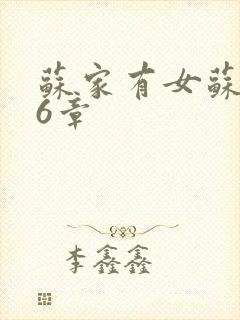 蘇家有女蘇
6章
李鑫鑫